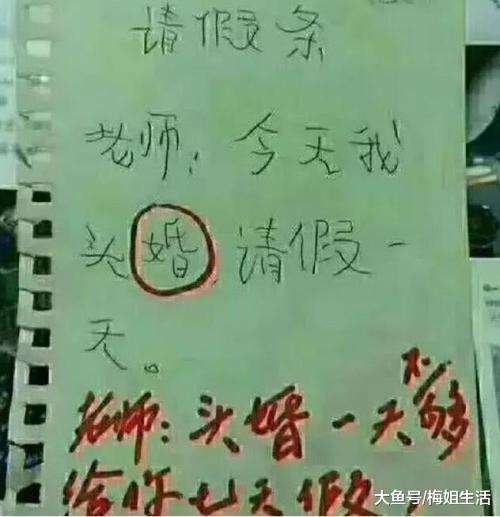 请假条
老师：今天我
头婚，请假一
天。
老师：头婚一天不够
给你七天假，
大鱼号/梅姐生活